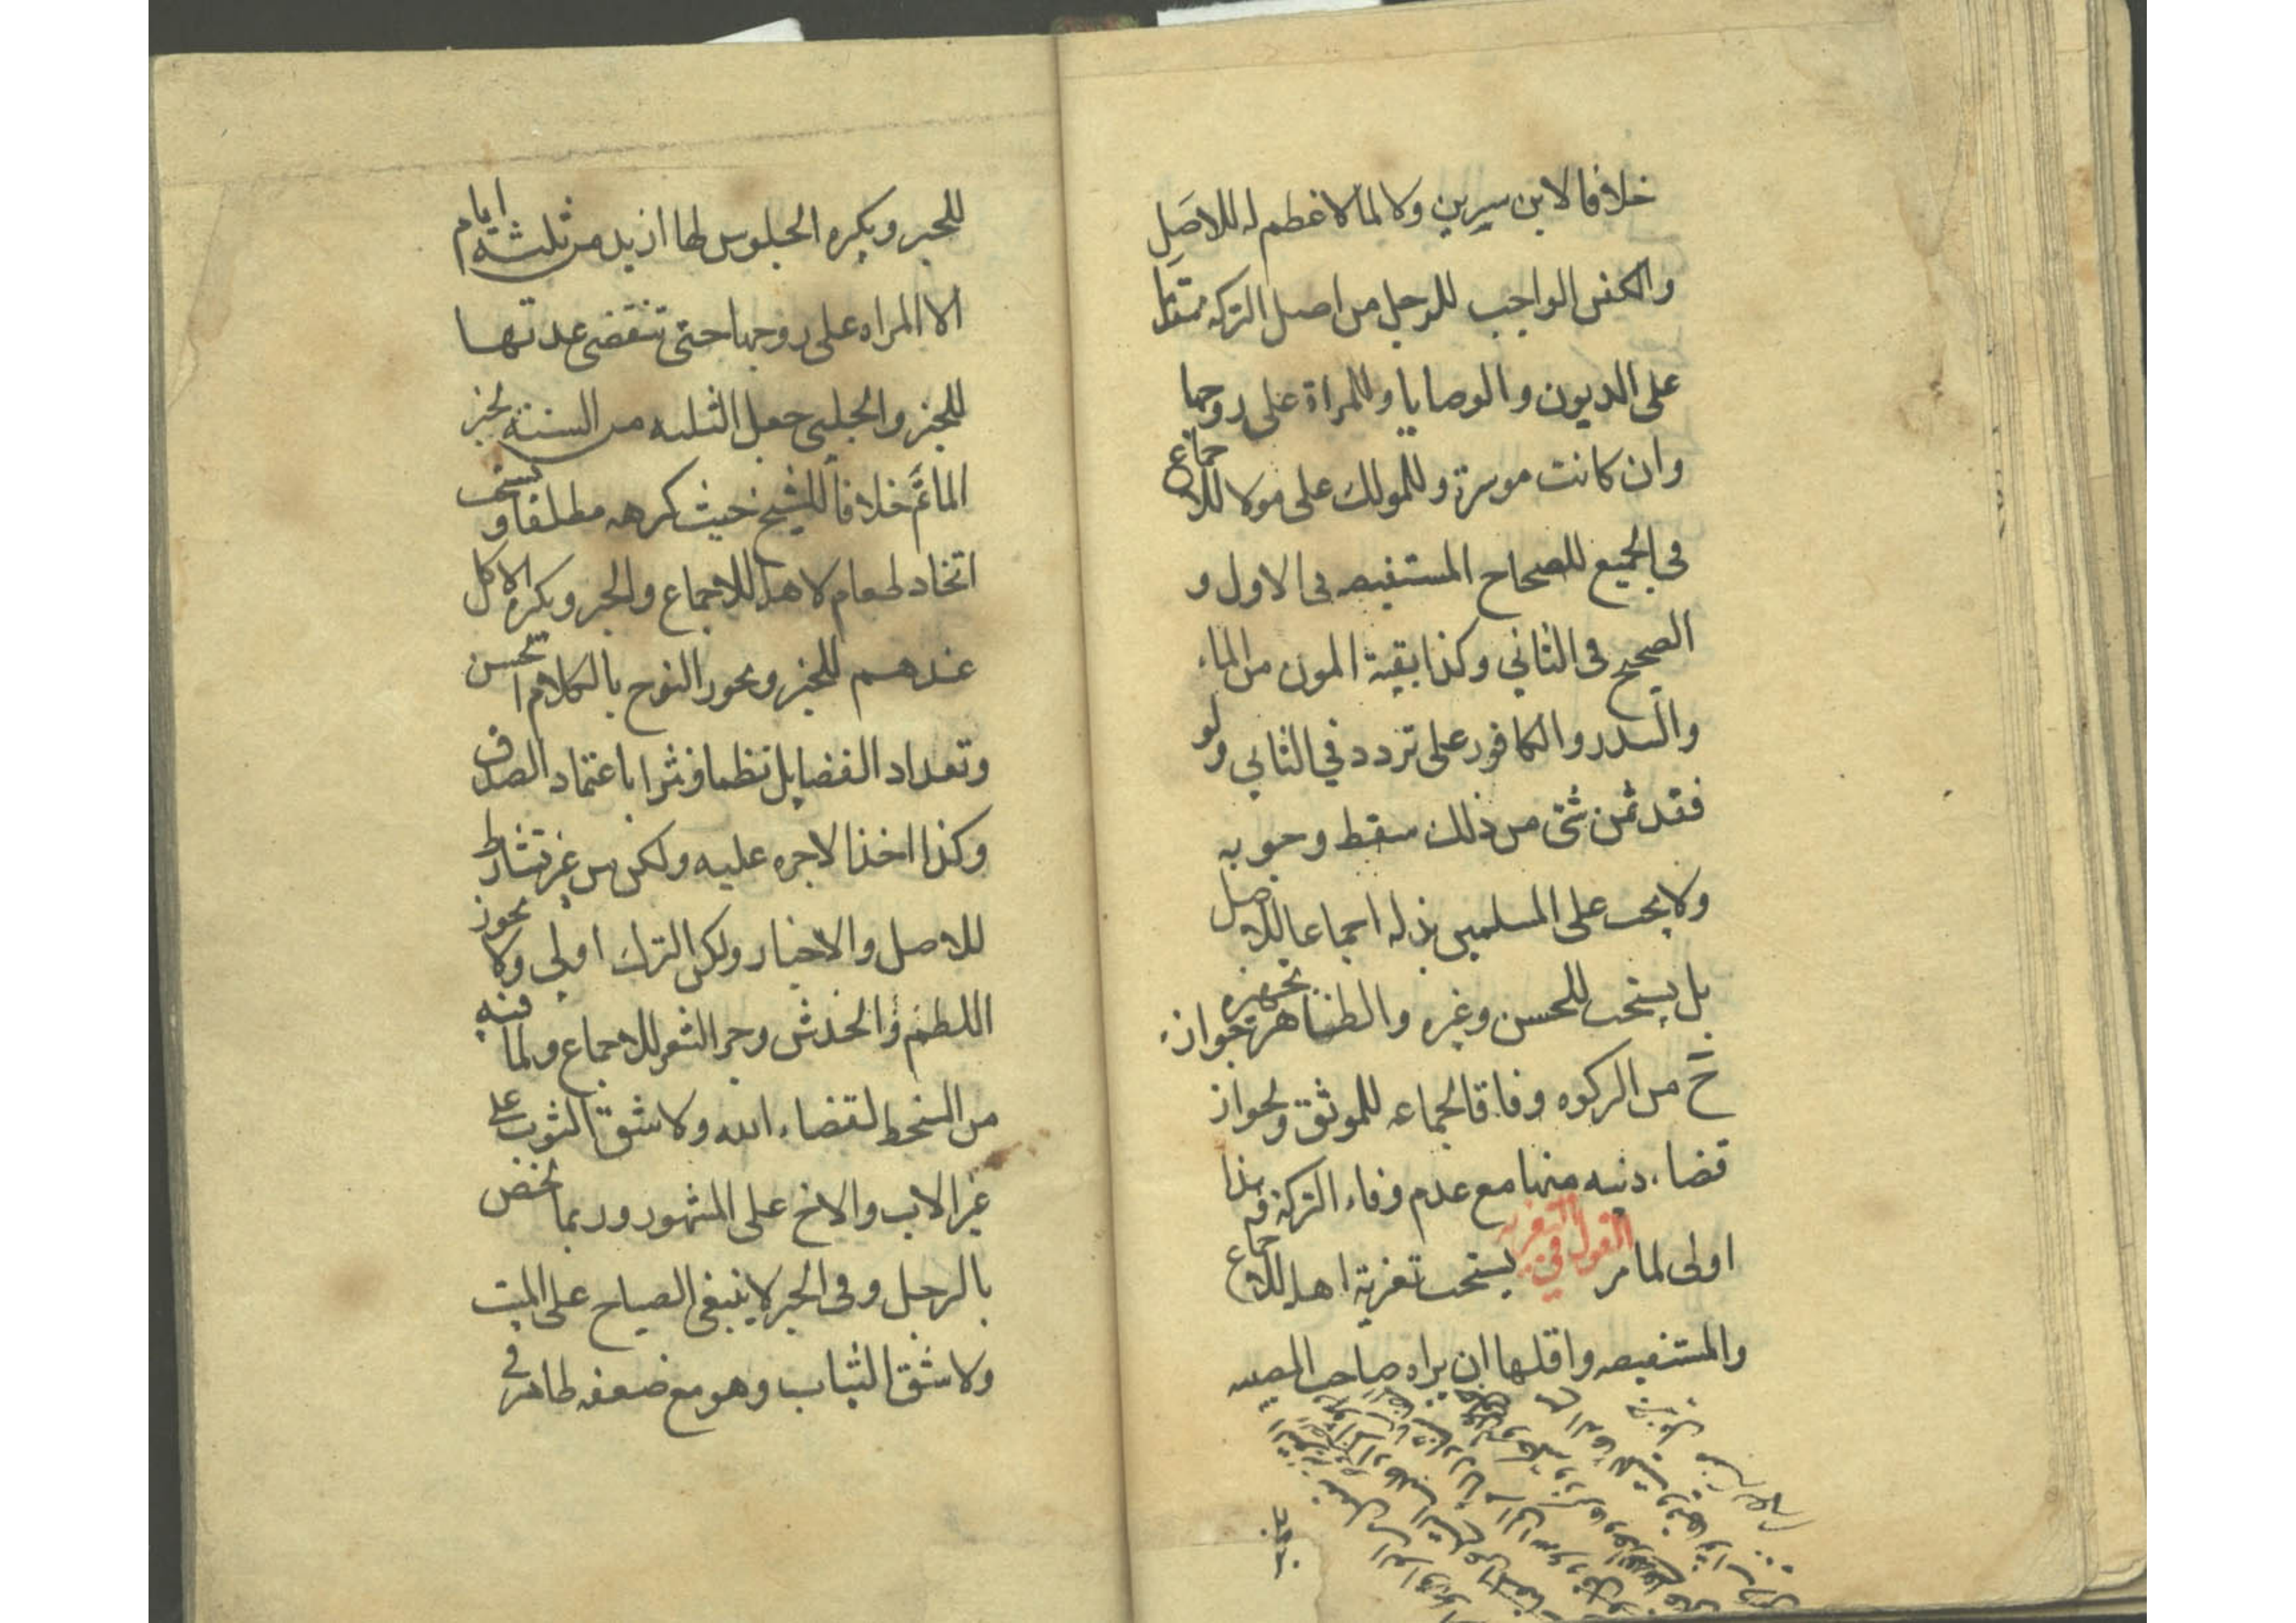 خلافا لابن سيرين ولا لما لا عظم له للاصل
والكفن الواجب للرجل من اصل التركة مقدما
على الديون والوصايا وللمراة على زوجها
وان كانت موسرة وللمولك على مولا للاجماع
فى الجميع للصحاح المستفيضه فى الاول و
الصحيح فى الثاني وكذا بقية المون من الماء
والسدر والكافور على تردد في الثاني ولو
فقد ثمن شئ من ذلك سقط وجوبه
ولا يجب على المسلمين بذله اجماعا للاصل
بل يستحب للحسن وغيره والظاهر جواز تجهيزه
ح من الزكوه وفاقا لجماعه للموثق ولجواز
قضاء دينه منها مع عدم وفاء التركة فهذا
اولى لما مر القول في التعزيه يستحب تعزية اهله للاجماع
والمستفيضه واقلها ان يراه صاحب المصيبه
للخبر ويكره الجلوس لها ازيد من ثلثة ايام
الا المراه على زوجها حتى تنقضى عدتها
للخبر والحلبى جعل الثلثه من السنة لخبر
الماتم خلافا للشيخ حيث كرهه مطلقا ويستحب
اتخاد طعام لاهله للاجماع والخبر ويكره الاكل
عندهم للخبر ويجوز النوح بالكلام الحسن
وتعداد الفضايل نظما ونثرا باعتماد الصدق
وكذا اخذ الاجره عليه ولكن من غير تشارط
للاصل والاخبار ولكن الترك اولى ولا يجوز
اللطم والخدش وجز الشعر للاجماع ولما فيه
من السخط لقضاء الله ولا شق الثوب على
غير الاب والاخ على المشهور وربما يخص
بالرجل وفى الخبر لا ينبغى الصياح على الميت
ولا شق الثياب وهو مع ضعفه ظاهر فى